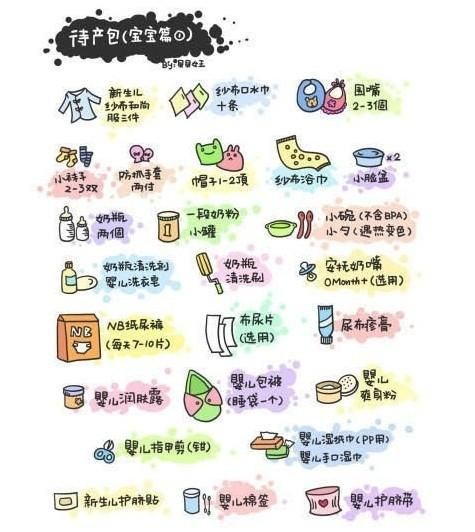 待产包(宝宝篇①)
By:贝贝女王
新生儿
纱布和尚
服三件
纱布口水巾
十条
围嘴
2-3個
小袜子
2-3双
防抓手套
两付
帽子1-2頂
纱布浴巾
×2
小脸盆
奶瓶
两個
一段奶粉
小罐
小碗(不含BPA)
小勺(遇热变色)
奶瓶清洗剂
嬰儿洗衣皂
奶瓶
清洗刷
安抚奶嘴
0Month+(选用)
NB
NB纸尿裤
(每天7-10片)
布尿片
(选用)
尿布疹膏
嬰儿润肤露
嬰儿包被
(睡袋一个)
嬰儿
爽身粉
嬰儿指甲剪(钳)
嬰儿湿纸巾(PP用)
嬰儿手口湿巾
新生儿护脐贴
嬰儿棉签
嬰儿护脐带